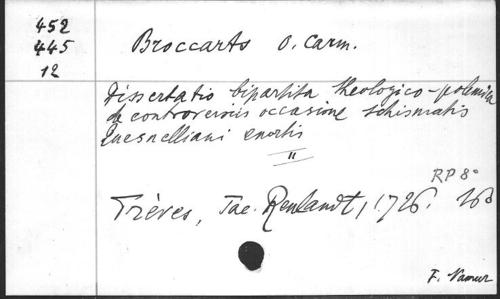 452
445
12
Broccarts O. Carm.
Dissertatio bipartita theologico-polemica
de controversiis occasione schismatis
Quesnelliani exortis
II
RP 8°
Trèves, Jac. Reulandt, 1726.
F. Namur